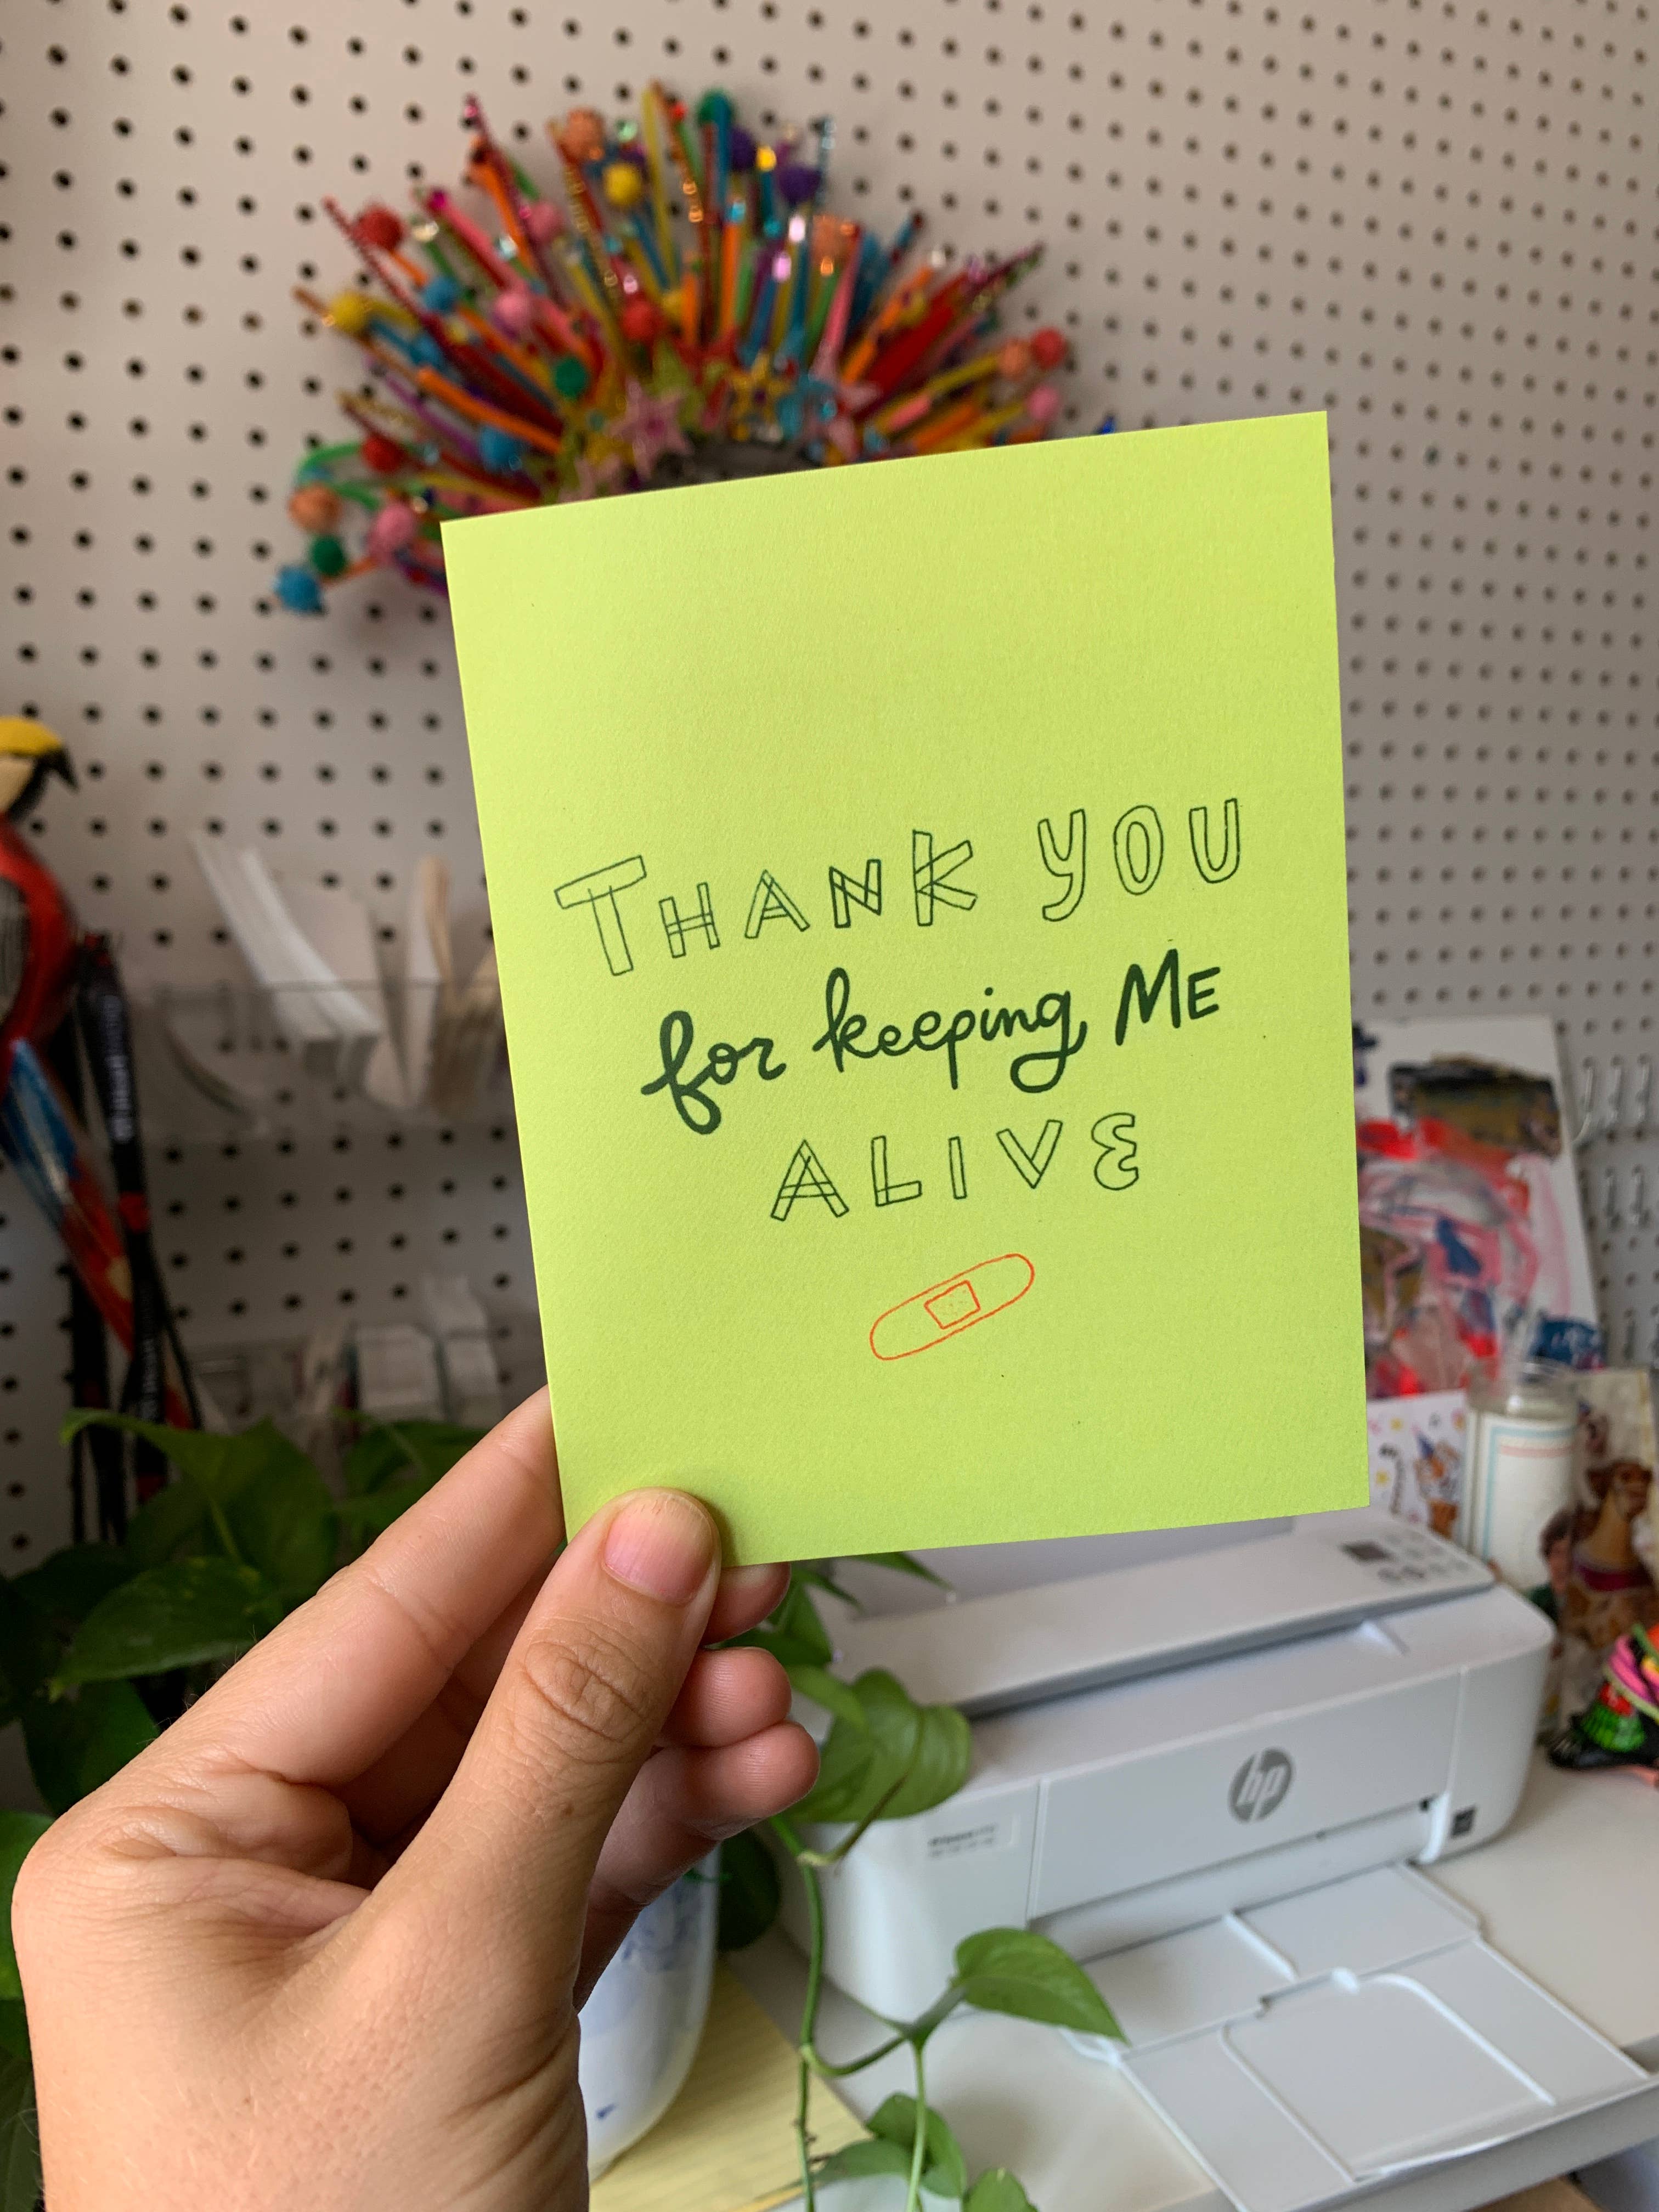 THANK YOU
for keeping ME
ALIVE
hp